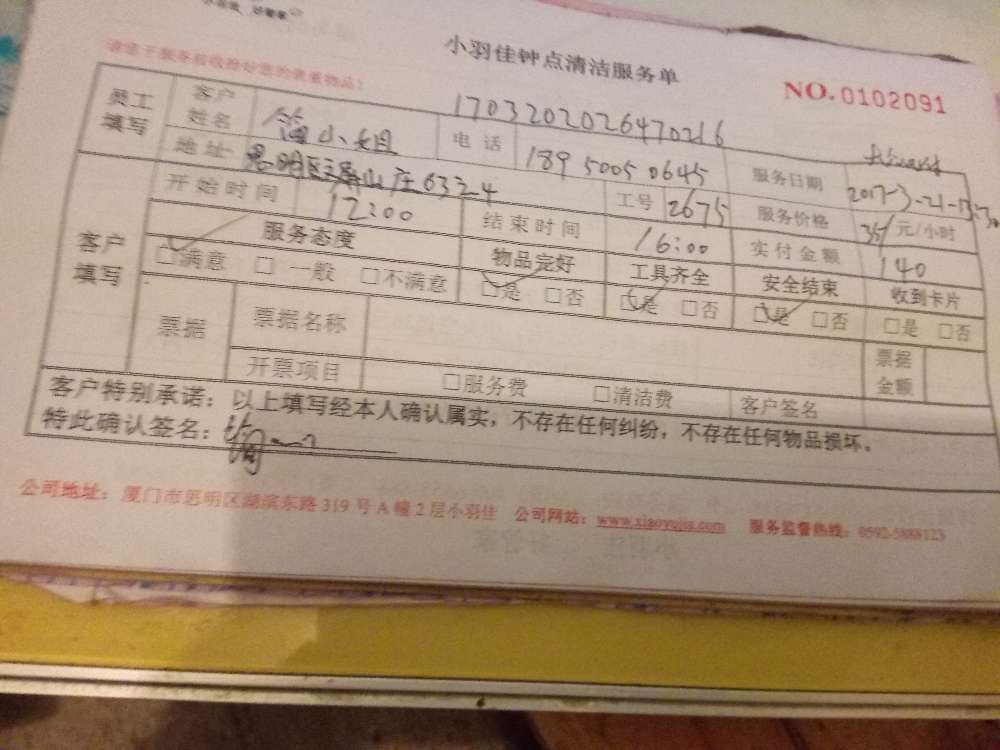 小羽佳钟点清洁服务单
NO.0102091
请您于服务前收捡好您的贵重物品！
1703202026470216
员工填写 客户姓名 小姐 电话 189 5005 0645 服务日期 2017-3-21-13:30
地址 明区 山庄 63 24 工号 2675 服务价格 35/元/小时
客户填写 开始时间 12:00 结束时间 16:00 实付金额 140
服务态度 物品完好 工具齐全 安全结束 收到卡片
□满意 □一般 □不满意 □是 □否 □是 □否 □是 □否 □是 □否
票据 票据名称 票据金额
开票项目 □服务费 □清洁费 客户签名
客户特别承诺：以上填写经本人确认属实，不存在任何纠纷，不存在任何物品损坏。
特此确认签名：
公司地址：厦门市思明区湖滨东路 319 号 A 幢 2 层小羽佳 公司网站：www.xiaoyujia.com 服务监督热线：0592-5888123